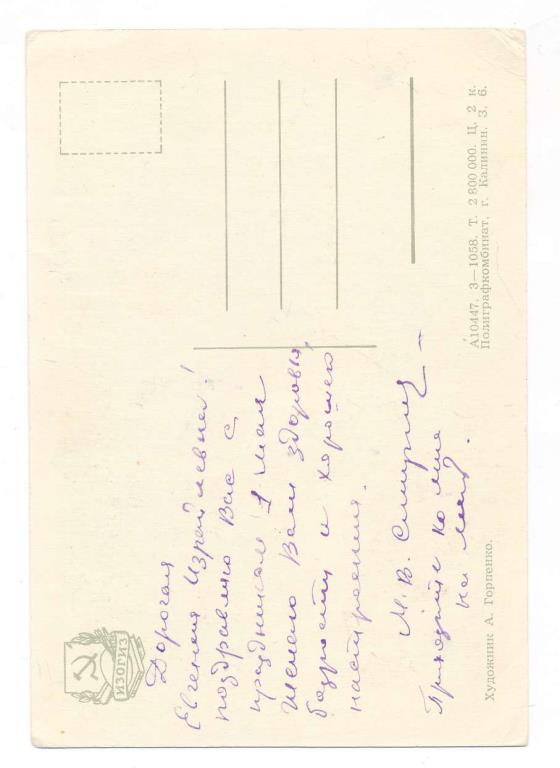 ИЗОГИЗ
Дорогая
Евгения Израйлевна!
поздравляю Вас с
праздником 1 мая
Желаю Вам здоровья,
бодрости и хорошего
настроения.
М. В. Смирнов —
Приходите ко мне
на
Художник А. Горпенко.
А10447. 3—1058. Т. 2 800 000. Ц. 2 к.
Полиграфкомбинат, г. Калинин. З. 6.